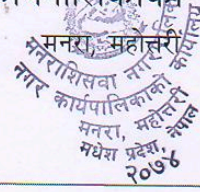 मनरा, महोत्तरी
मनराशिसवा नगरपालिका
नगर कार्यपालिकाको कार्यालय
मनरा, महोत्तरी
मधेश प्रदेश, नेपाल
२०७४